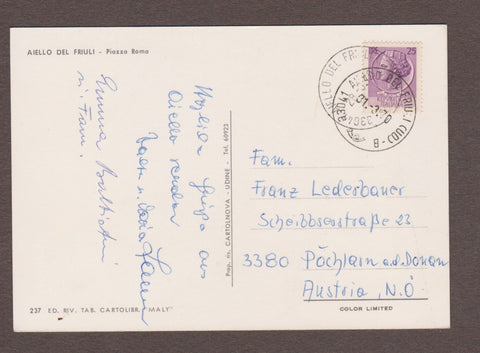 AIELLO DEL FRIULI - Piazza Roma
Herzliche Grüße aus
Aiello senden
Emma
u. Fam.
Prop. ris. CARTOLNOVA - UDINE - Tel. 60923
25
AIELLO DEL FRIULI (UD)
33041
- B -
Fam.
Franz Lederbauer
Scheibbserstraße 23
3380 Pöchlarn a.d. Donau
Austria, N.Ö
237 ED. RIV. TAB. CARTOLIBR. "MALY"
COLOR LIMITED